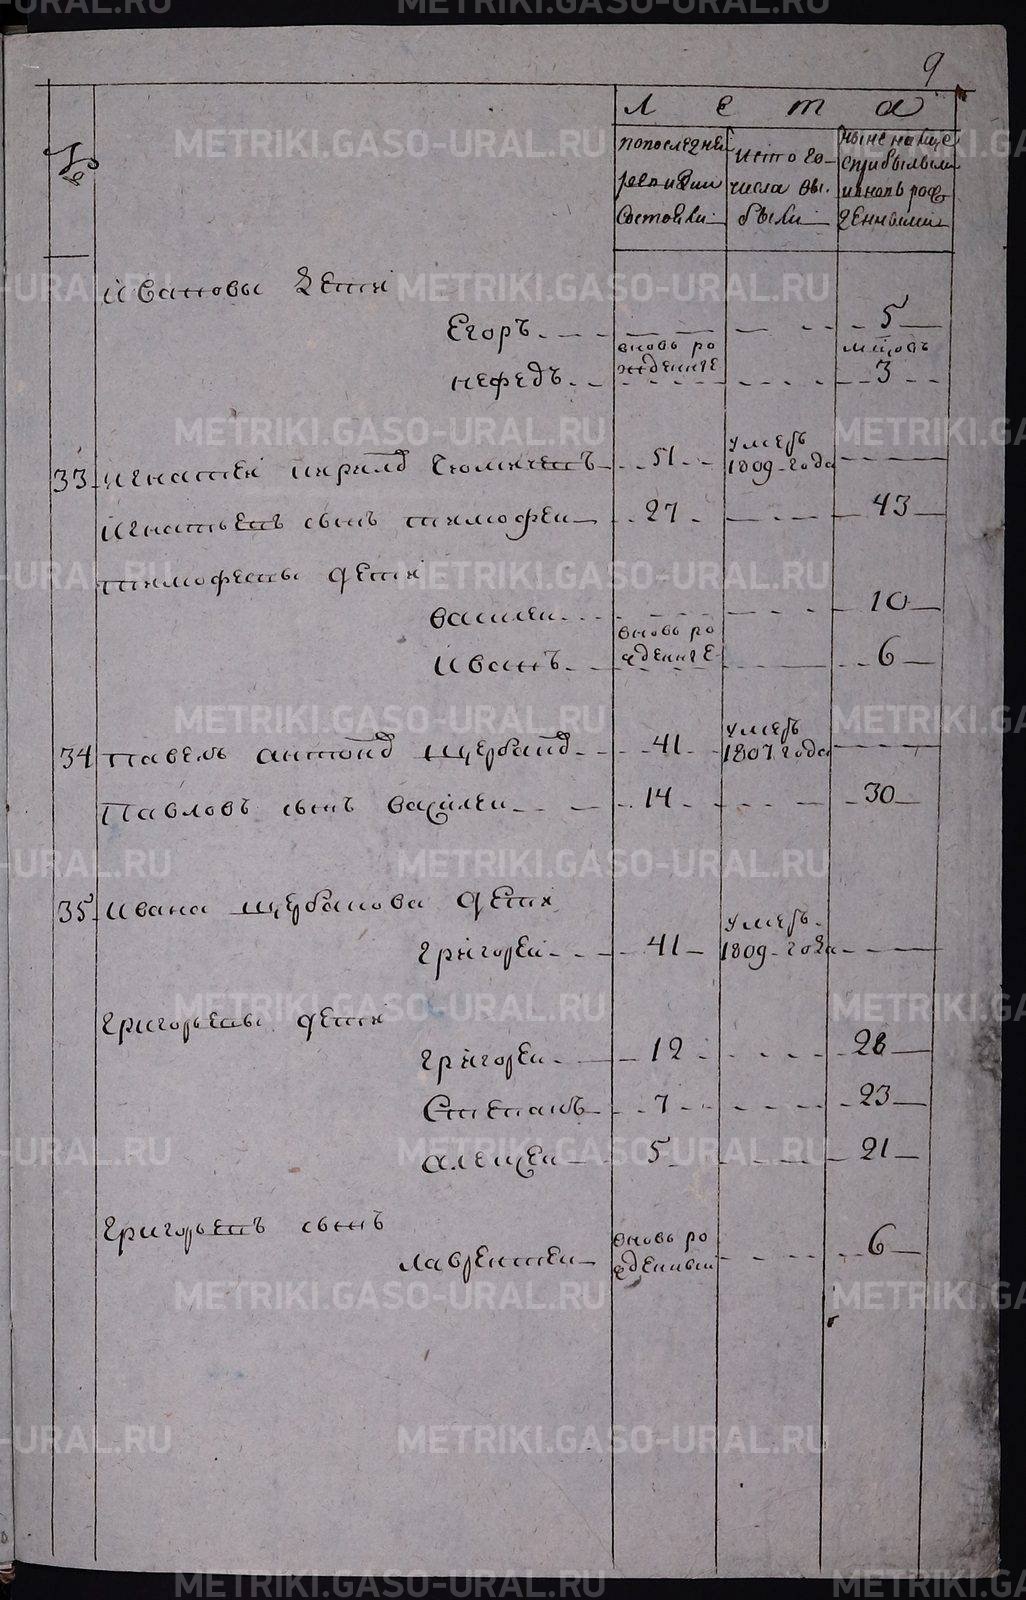 9
№
Лета
по последней ревизии состояли
исъ того числа выбыли
ныне налице с прибылыми и вновь рожденными
Ивановы дети
Егоръ 5
вновь рожденные
месяцовъ
Нефедъ 3
33 Игнатей 51 умеръ 1809 года
Игнатьевъ сынъ Тимофей 27 43
Тимофеевы дети
Василей 10
вновь рожденные
Иванъ 6
34 Павелъ Антоновъ Щербаковъ 41 умеръ 1807 года
Павловъ сынъ Василей 14 30
35 Ивана Щербакова дети
Григорей 41 умеръ 1809 года
Григорьевы дети
Григорей 12 28
Степанъ 7 23
Алексей 5 21
Григорьевъ сынъ
Лаврентей вновь рожденный 6
METRIKI.GASO-URAL.RU